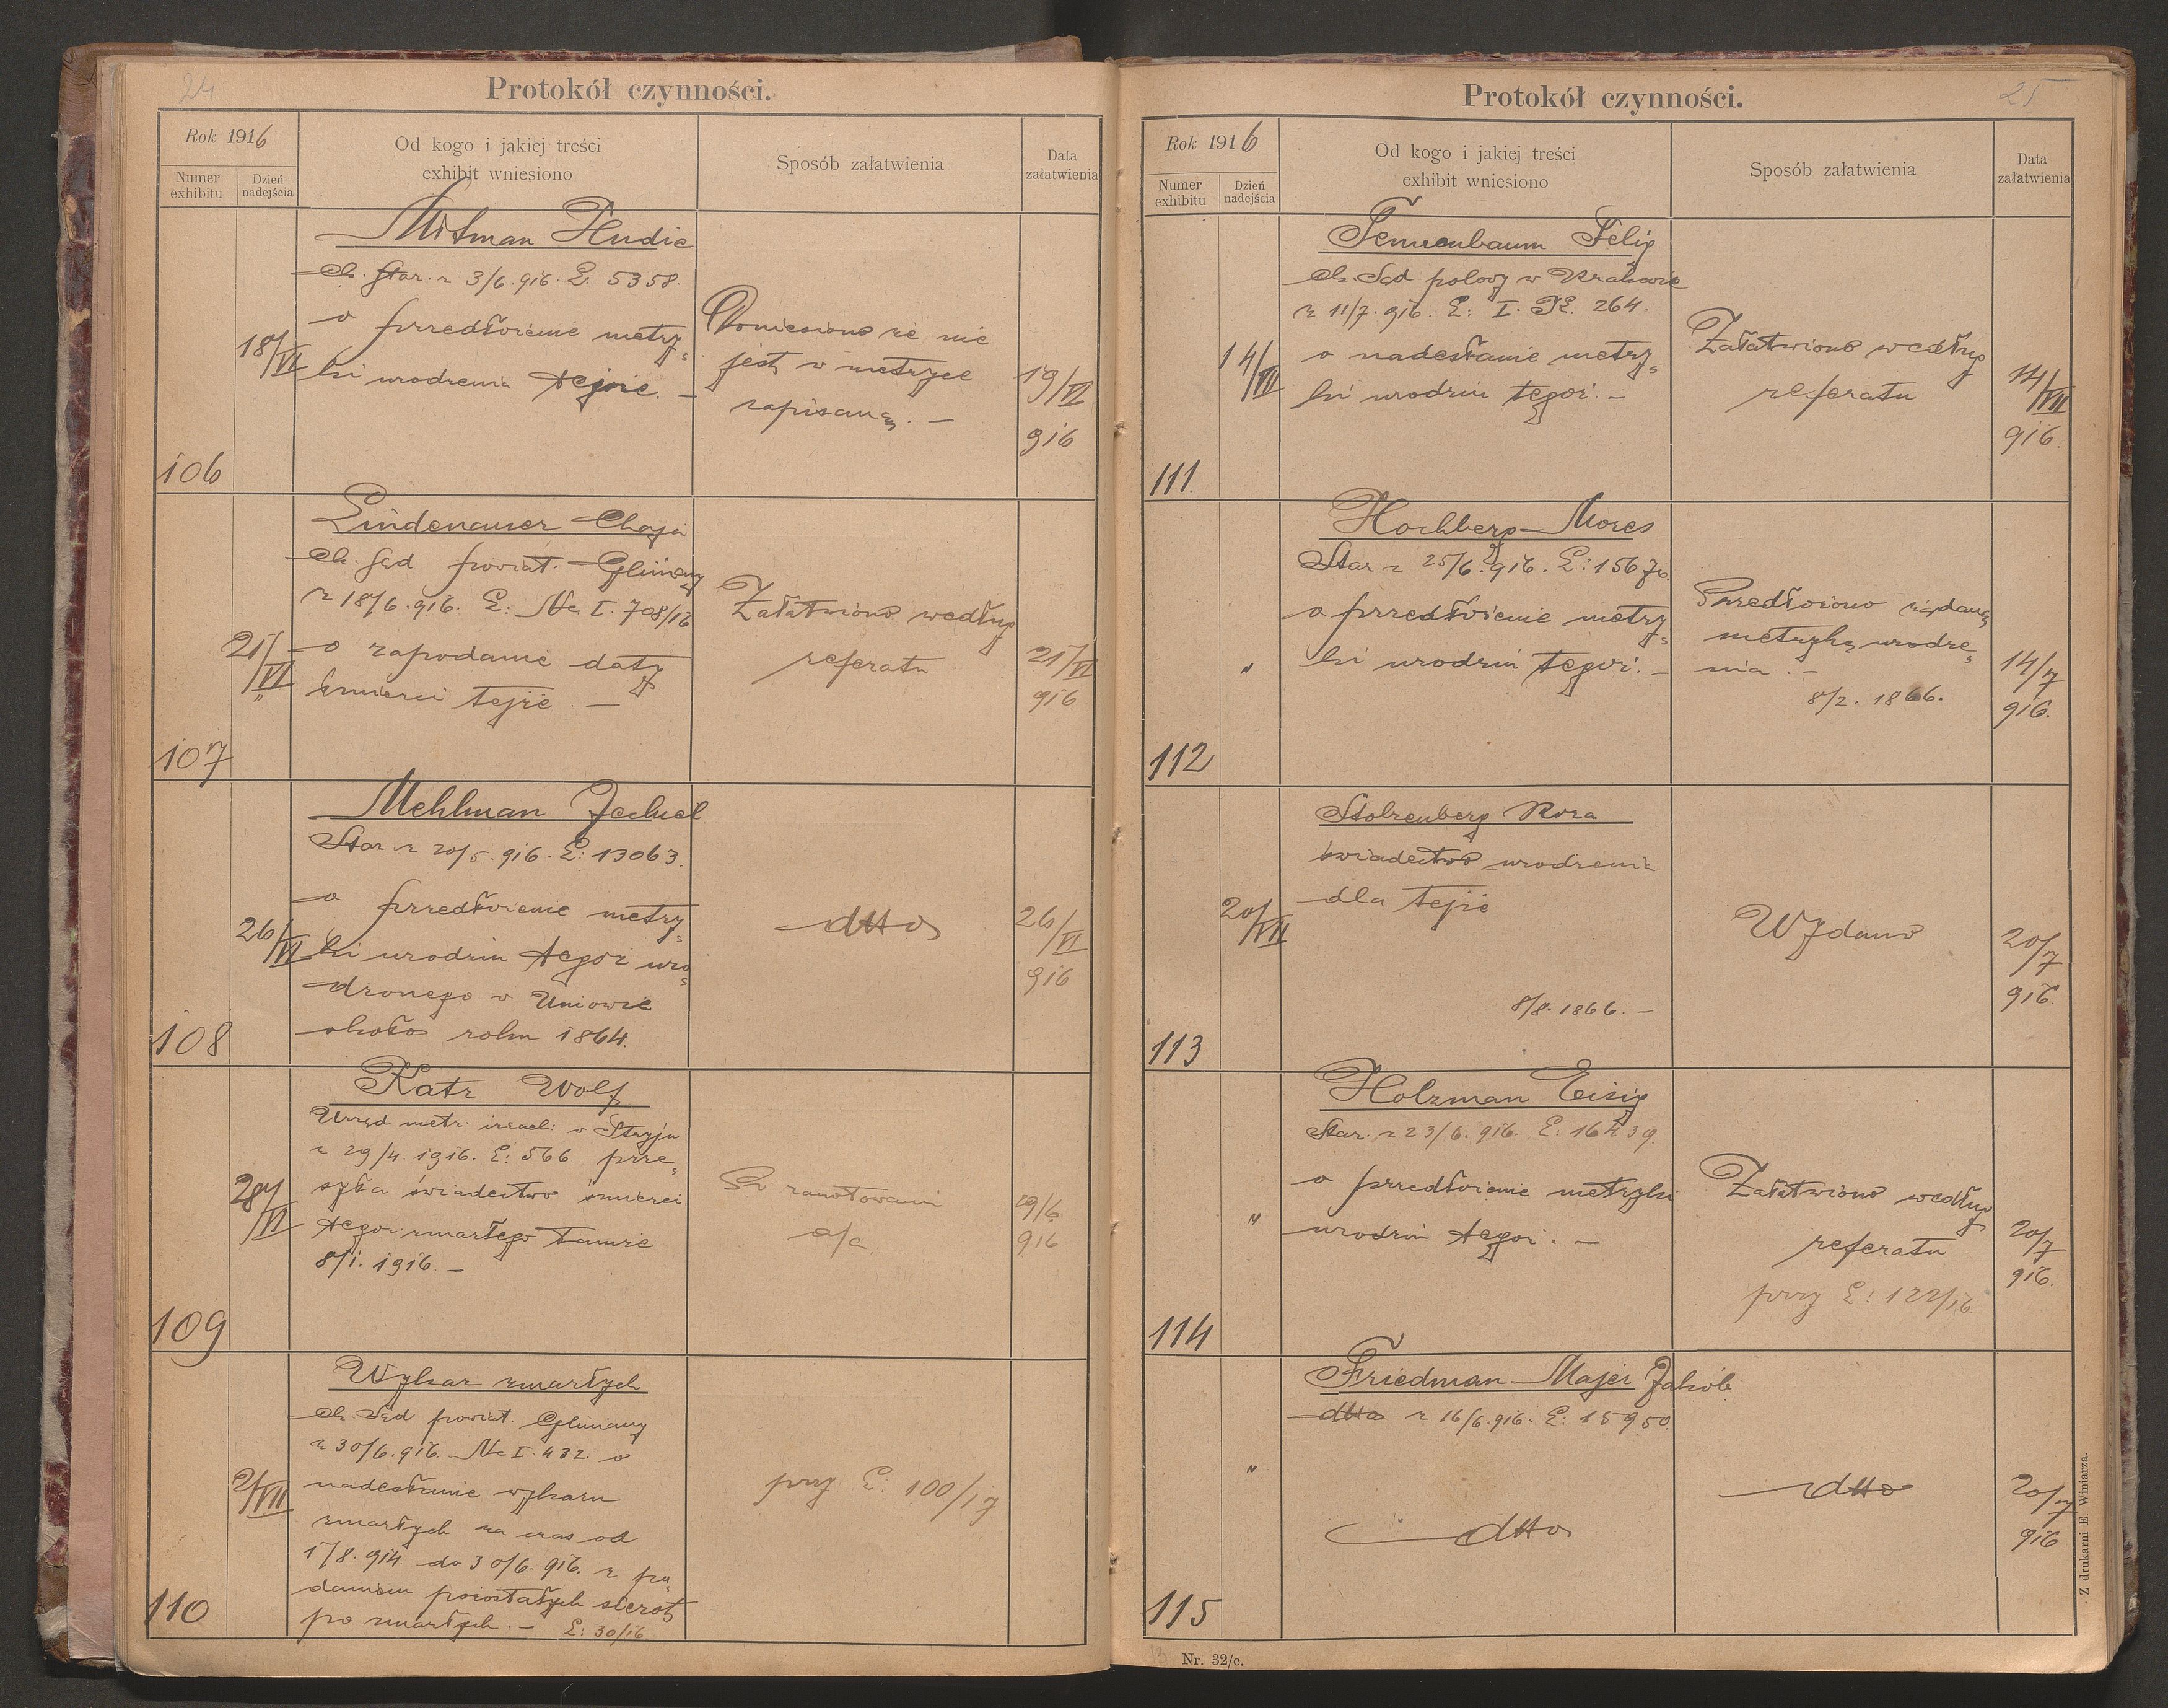 24
Protokół czynności.
Rok 1916
Numer exhibitu
Dzień nadejścia
Od kogo i jakiej treści
exhibit wniesiono
Sposób załatwienia
Data
załatwienia
106
18/VI
Mitman Hudie
Ck. Star. z 3/6. 916. L: 5358.
o przedłożenie metry=
ki urodzenia tejże. —
Doniesiono że nie
jest w metryce
zapisaną. —
19/VI
916
107
21/VI
Lindenauer Chaja
Ck. Sąd powiat. Gliniany
z 18/6. 916. L: Nc. I. 708/16
o zapodanie daty
śmierci tejże. —
Załatwiono według
referatu
21/VI
916
108
26/VI
Mehlman Jechuel
Star. z 20/5. 916. L: 13063.
o przedłożenie metry=
ki urodzin tegoż uro=
dzonego w Uniowie
około roku 1864.
dtto
26/VI
916
109
29/VI
Katz Wolf
Urząd metr. izrael. w Stryju
z 29/4. 1916. L: 566 prze=
syła świadectwo śmierci
tegoż zmarłego tamże
8/1. 1916. —
Po zanotowaniu
a/a.
29/6.
916
110
2/VII
Wykaz zmarłych
Ck. Sąd powiat. Gliniany
z 30/6. 916. Nc I. 432. o
nadesłanie wykazu
zmarłych za czas od
1/8. 914. do 30/6. 916. z po=
daniem pozostałych sierot
po zmarłych. — L: 30/16
przy L: 100/17
25
Protokół czynności.
Rok 1916
Numer exhibitu
Dzień nadejścia
Od kogo i jakiej treści
exhibit wniesiono
Sposób załatwienia
Data
załatwienia
111.
14/VII
Tennenbaum Selig
Ck. Sąd polowy w Krakowie
z 11/7. 916. L: I. 264.
o nadesłanie metry=
ki urodzin tegoż. —
Załatwiono według
referatu
14/VII
916.
112
"
Hochberg Mozes
Star z 25/6. 916. L: 15670.
o przedłożenie metry=
ki urodzin tegoż. —
Przedłożono żądaną
metrykę urodze=
nia. —
8/2. 1866.
14/7
916.
113
20/VII
Stolzenberg Roza
świadectwo urodzenia
dla tejże
8/8. 1866. —
Wydano
20/7
916.
114
"
Holzman Eisig
Star. z 23/6. 916. L: 16439.
o przedłożenie metryki
urodzin tegoż. —
Załatwiono według
referatu
przy L: 122/16.
20/7
916.
115
"
Friedman Majer Jakób
dtto z 16/6. 916. L: 15950.
dtto
dtto
20/7
916
Nr. 32/c.
Z drukarni E. Winiarza.